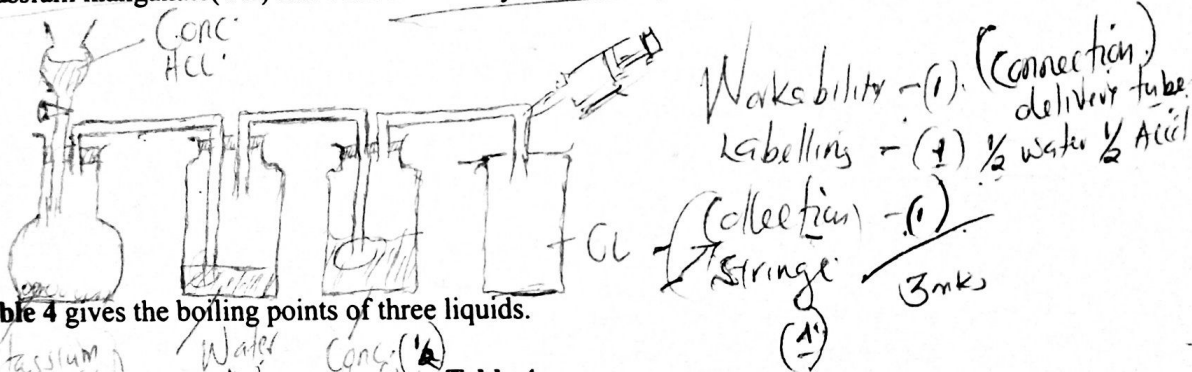 Conc.
HCl.
Workability - (1). (Connection)
delivery tube
Labelling - (1) ½ water ½ Acid
Collection - (1)
Cl
3mks
(1)
ble 4 gives the boiling points of three liquids.
tassium
Water
Conc. (½)